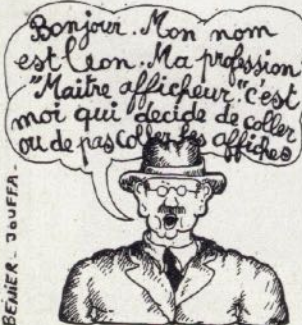 Bonjour. Mon nom
est Léon. Ma profession:
"Maitre afficheur". C'est
moi qui decide de coller
ou de pas coller les affiches
BENIER - JOUFFA -